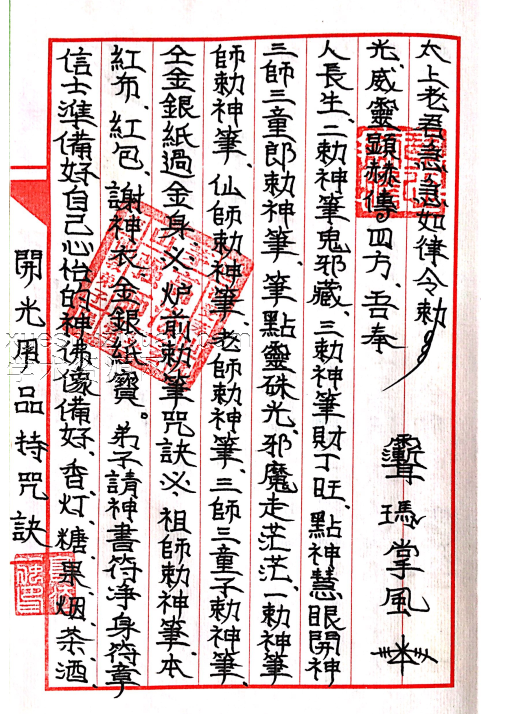 開光用品持咒訣
信士準備好自己心怡的神佛像備好、香灯、糖果、烟、茶酒、
紅布、紅包、謝神衣、金銀紙寶。弟子請神書符淨身符章
仝金銀紙過金身、必、炉前勅筆咒訣必、祖師勅神筆、本
師勅神筆、仙師勅神筆、老師勅神筆、三師三童子勅神筆、
三師三童郎勅神筆、筆點靈硃光、邪魔走茫茫、一勅神筆
人長生、二勅神筆鬼邪藏、三勅神筆財丁旺、點神慧眼開神
光、威靈顯赫傳四方、吾奉
太上老君急急如律令勅
掌風